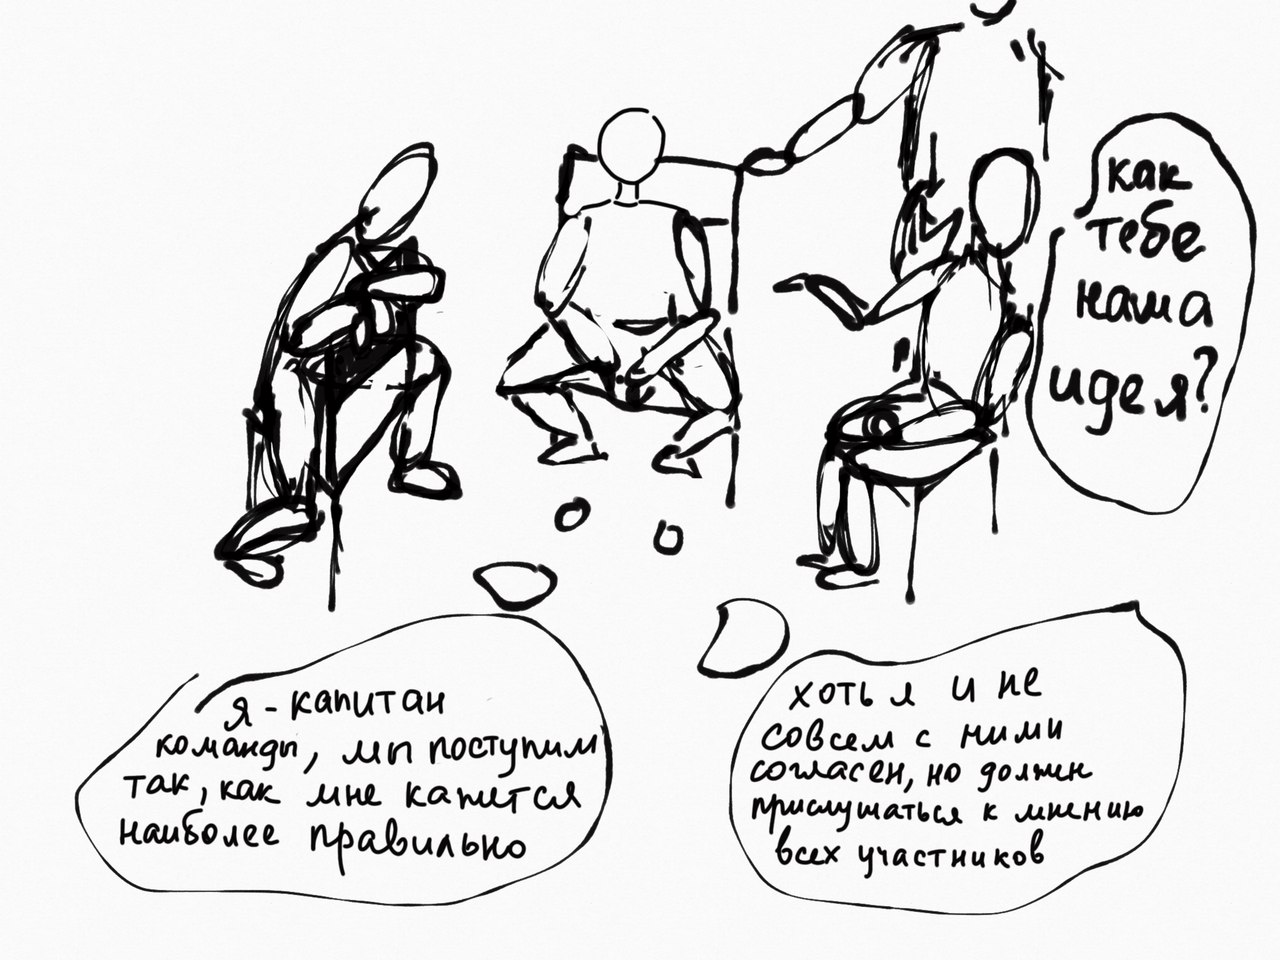 как
тебе
наша
идея?
я - капитан
команды, мы поступим
так, как мне кажется
наиболее правильно
хоть я и не
совсем с ними
согласен, но должен
прислушаться к мнению
всех участников